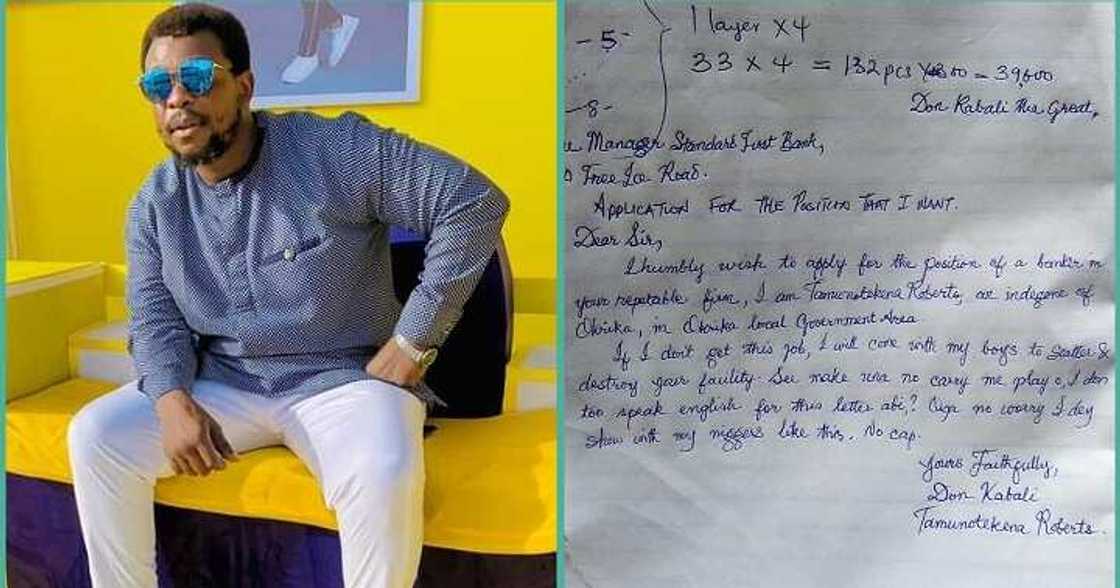 1 layer x4
- 5 -
33 x 4 = 132 pcs x 300 = 39,600
- 8 -
Don Kabali the Great,
Manager Standard First Bank,
Free Ice Road.
APPLICATION FOR THE POSITION THAT I WANT.
Dear Sir,
I humbly wish to apply for the position of a banker in
your reputable firm, I am Tamunotekena Roberts, an indegene of
Okrika, in Okrika Local Government Area
If I don't get this job, I will come with my boys to scatter &
destroy your facility. See make una no carry me play o, I don
too speak english for this letter abi? Cuga no worry I dey
show with my niggers like this. No cap.
Yours Faithfully,
Don Kabali
Tamunotekena Roberts.